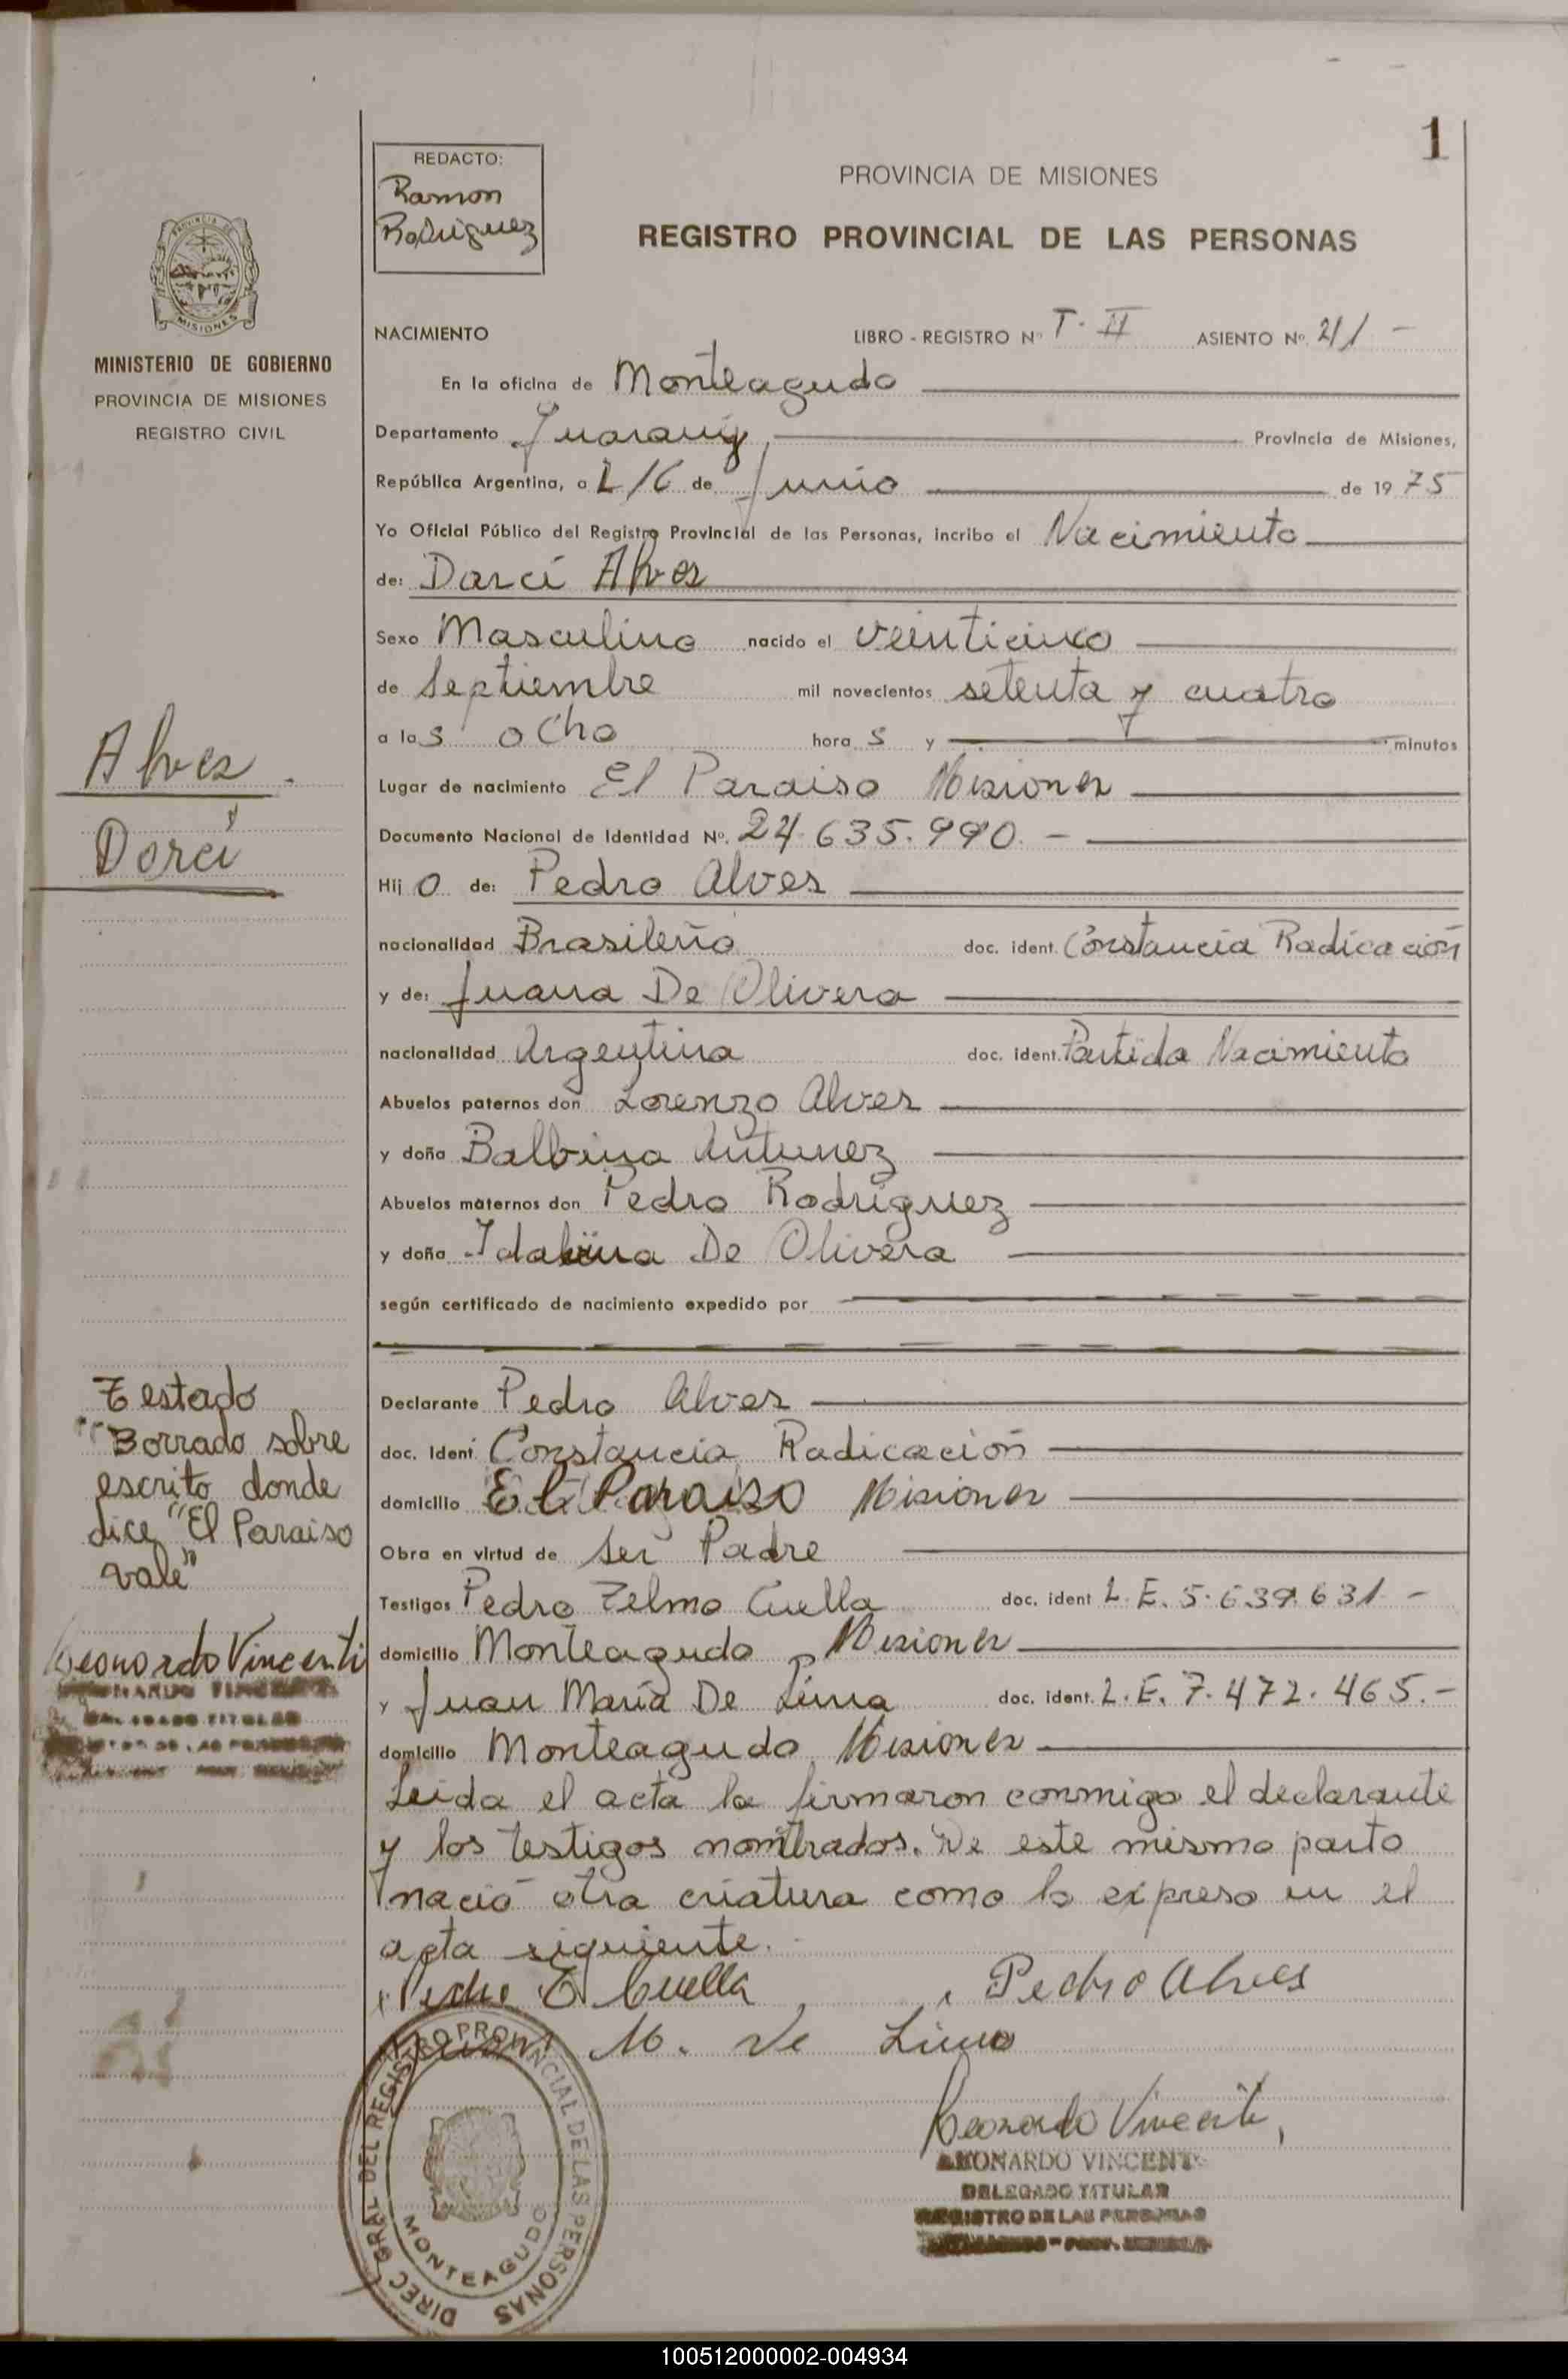 1
REDACTO:
Ramon
Rodriguez
PROVINCIA DE MISIONES
REGISTRO PROVINCIAL DE LAS PERSONAS
PROVINCIA DE
MISIONES
MINISTERIO DE GOBIERNO
PROVINCIA DE MISIONES
REGISTRO CIVIL
NACIMIENTO LIBRO - REGISTRO Nº T. II ASIENTO Nº 241 -
En la oficina de Monteagudo
Departamento Guarany, Provincia de Misiones,
República Argentina, a 16 de Junio de 1975
Yo Oficial Público del Registro Provincial de las Personas, incribo el Nacimiento
de: Darcí Alves
Sexo Masculino nacido el veinticinco
de Septiembre mil novecientos setenta y cuatro
a las ocho horas y minutos
Alves
Lugar de nacimiento El Paraiso Misiones
Documento Nacional de Identidad Nº. 24.635.990. -
Darcí
Hijo de: Pedro Alves
nacionalidad Brasileño doc. ident. Constancia Radicación
y de: Juana De Olivera
nacionalidad Argentina doc. ident. Partida Nacimiento
Abuelos paternos don Lorenzo Alves
y doña Balbina Antunez
Abuelos maternos don Pedro Rodríguez
y doña Idalina De Olivera
según certificado de nacimiento expedido por
Testado
"Borrado sobre
escrito donde
dice "El Paraiso
vale"
Leonardo Vincenti
Declarante Pedro Alves
doc. Ident. Constancia Radicación
domicilio El Paraiso Misiones
Obra en virtud de ser Padre
Testigos Pedro Telmo Cuella doc. ident L.E. 5.639.631 -
domicilio Monteagudo, Misiones
y Juan María De Lima doc. ident. L.E. 7.472.465.-
domicilio Monteagudo, Misiones
Leida el acta la firmaron conmigo el declarante
y los testigos nombrados. De este mismo parto
nació otra criatura como lo expreso en el
acta siguiente.
Pedro T Cuella Pedro Alves
Juan M. de Lima
Leonardo Vincenti
LEONARDO VINCENTI
DELEGADO TITULAR
REGISTRO DE LAS PERSONAS
DIREC. GRAL DEL REGISTRO PROVINCIAL DE LAS PERSONAS
MONTEAGUDO
100512000002-004934